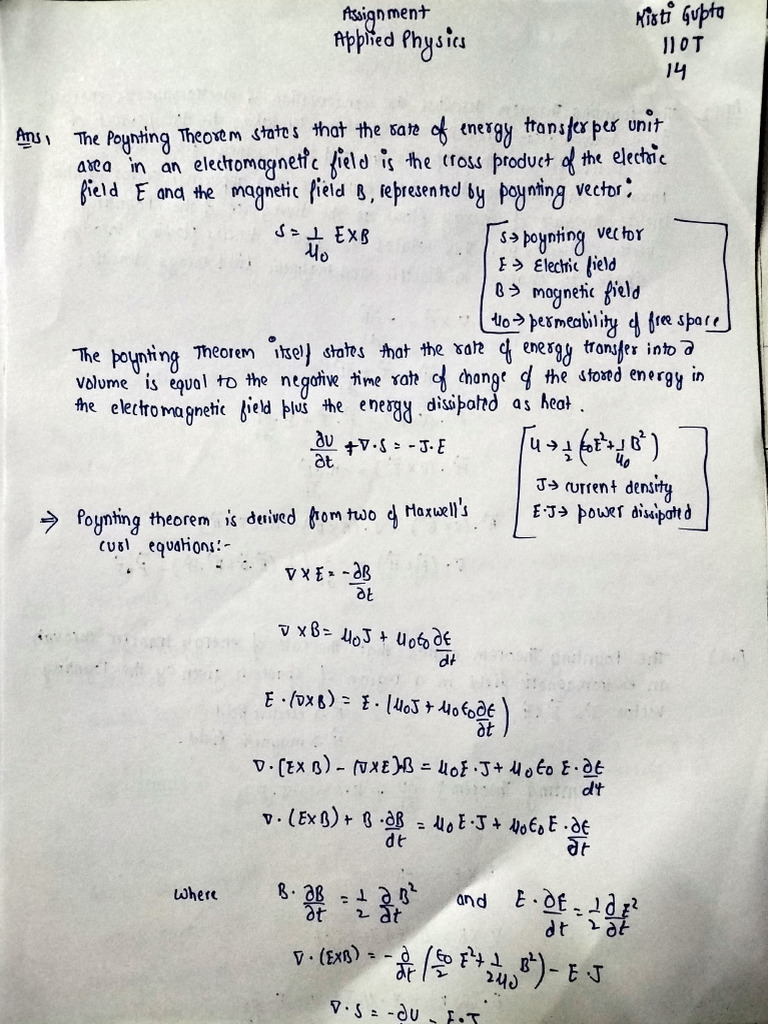 Assignment
Applied Physics
Kirti Gupta
110T
14
Ans1 The Poynting Theorem states that the rate of energy transfer per unit
area in an electromagnetic field is the cross product of the electric
field E and the magnetic field B, represented by poynting vector:
S = 1/μ0 E×B
S→ poynting vector
E→ Electric field
B→ magnetic field
μ0→ permeability of free space
The poynting Theorem itself states that the rate of energy transfer into a
volume is equal to the negative time rate of change of the stored energy in
the electromagnetic field plus the energy dissipated as heat.
∂U/∂t + ∇·S = -J·E
U → 1/2 (ε0E² + 1/μ0 B²)
J→ current density
E·J→ power dissipated
⇒ Poynting theorem is derived from two of Maxwell's
curl equations:-
∇×E = -∂B/∂t
∇×B = μ0J + μ0ε0 ∂E/dt
E·(∇×B) = E·(μ0J + μ0ε0 ∂E/∂t)
∇·(E×B) - (∇×E)·B = μ0E·J + μ0ε0 E·∂E/dt
∇·(E×B) + B·∂B/dt = μ0E·J + μ0ε0E·∂E/∂t
where B·∂B/∂t = 1/2 ∂/∂t B² and E·∂E/dt = 1/2 ∂/∂t E²
∇·(E×B) = -∂/dt (ε0/2 E² + 1/2μ0 B²) - E·J
∇·S = -∂U - E·J